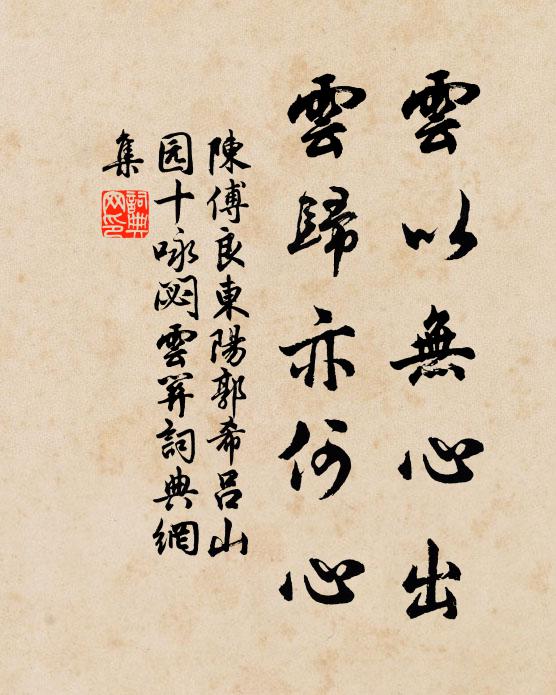 雲以無心出
雲歸亦何心
陳傅良東陽郭希呂山
园十咏閟雲關詞典網
集
詞典
网印